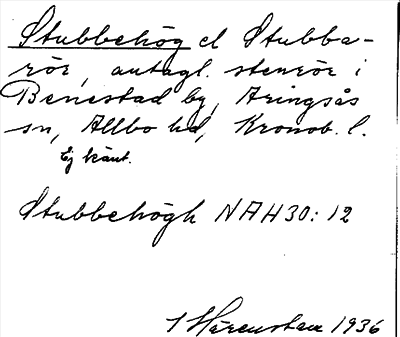 Stubbehög el Stubba-
rör, antagl. stenrör i
Benestad by, Aringsås
sn, Allbo hd, Kronob. l.
Ej känt.
Stubbehögh NAH 30:12
1936